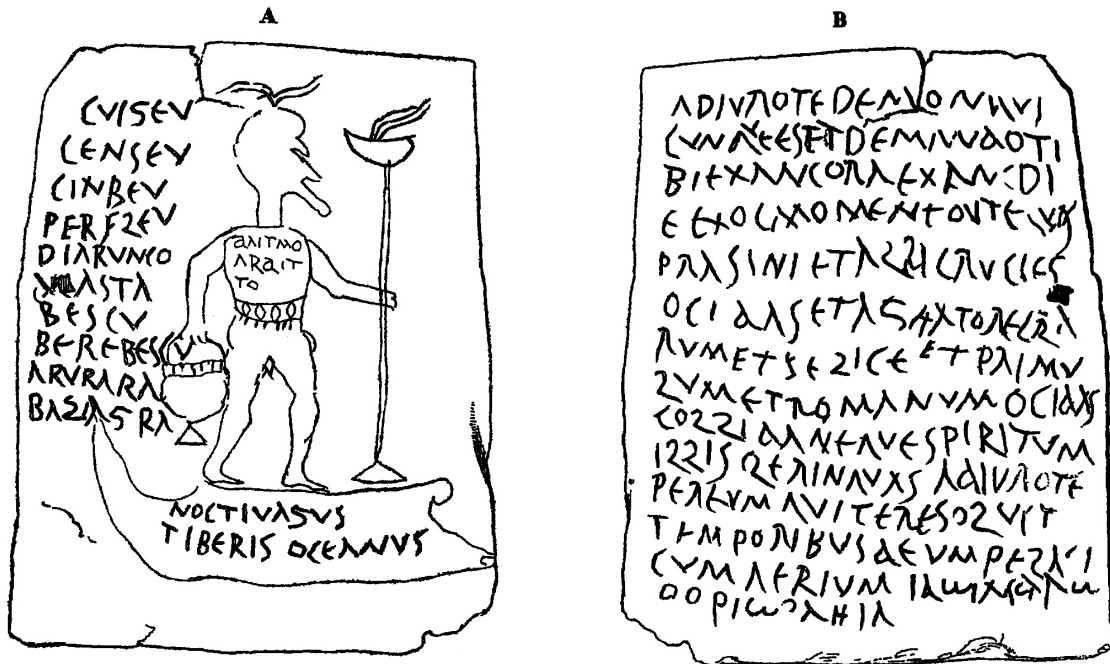 A
CVIGEV
CENSEV
CINBEV
PERFLEV
DIARVNCO
DEASTA
BESCV
BEREBESCV
ARVRARA
BAGAGRA
ANTMO
ARAIT
TO
NOCTIVAGVS
TIBERIS OCEANVS
B
ADIVROTEDEMONQVI
CVNQVEESETDEMANDOTI
BIEXANCORAEXANCDI
EEXOCMOMENTOVTEQVOS
PRASINIETALBICRVCIES
OCIDASETAGITATORECLA
RVMETFELICEETPRIMV
LVMETROMANVMOCIDAS
COLLIDANEQVESPIRITVM
ILLISRELINQVASADIVROTE
PEREVMQVITERESOLVIT
TEMPORIBVSDEVMPELAGI
CVMAERIVMΙΑωΙΑΣΔΑω
ΟΟΡΙω ΑΗΙΑ